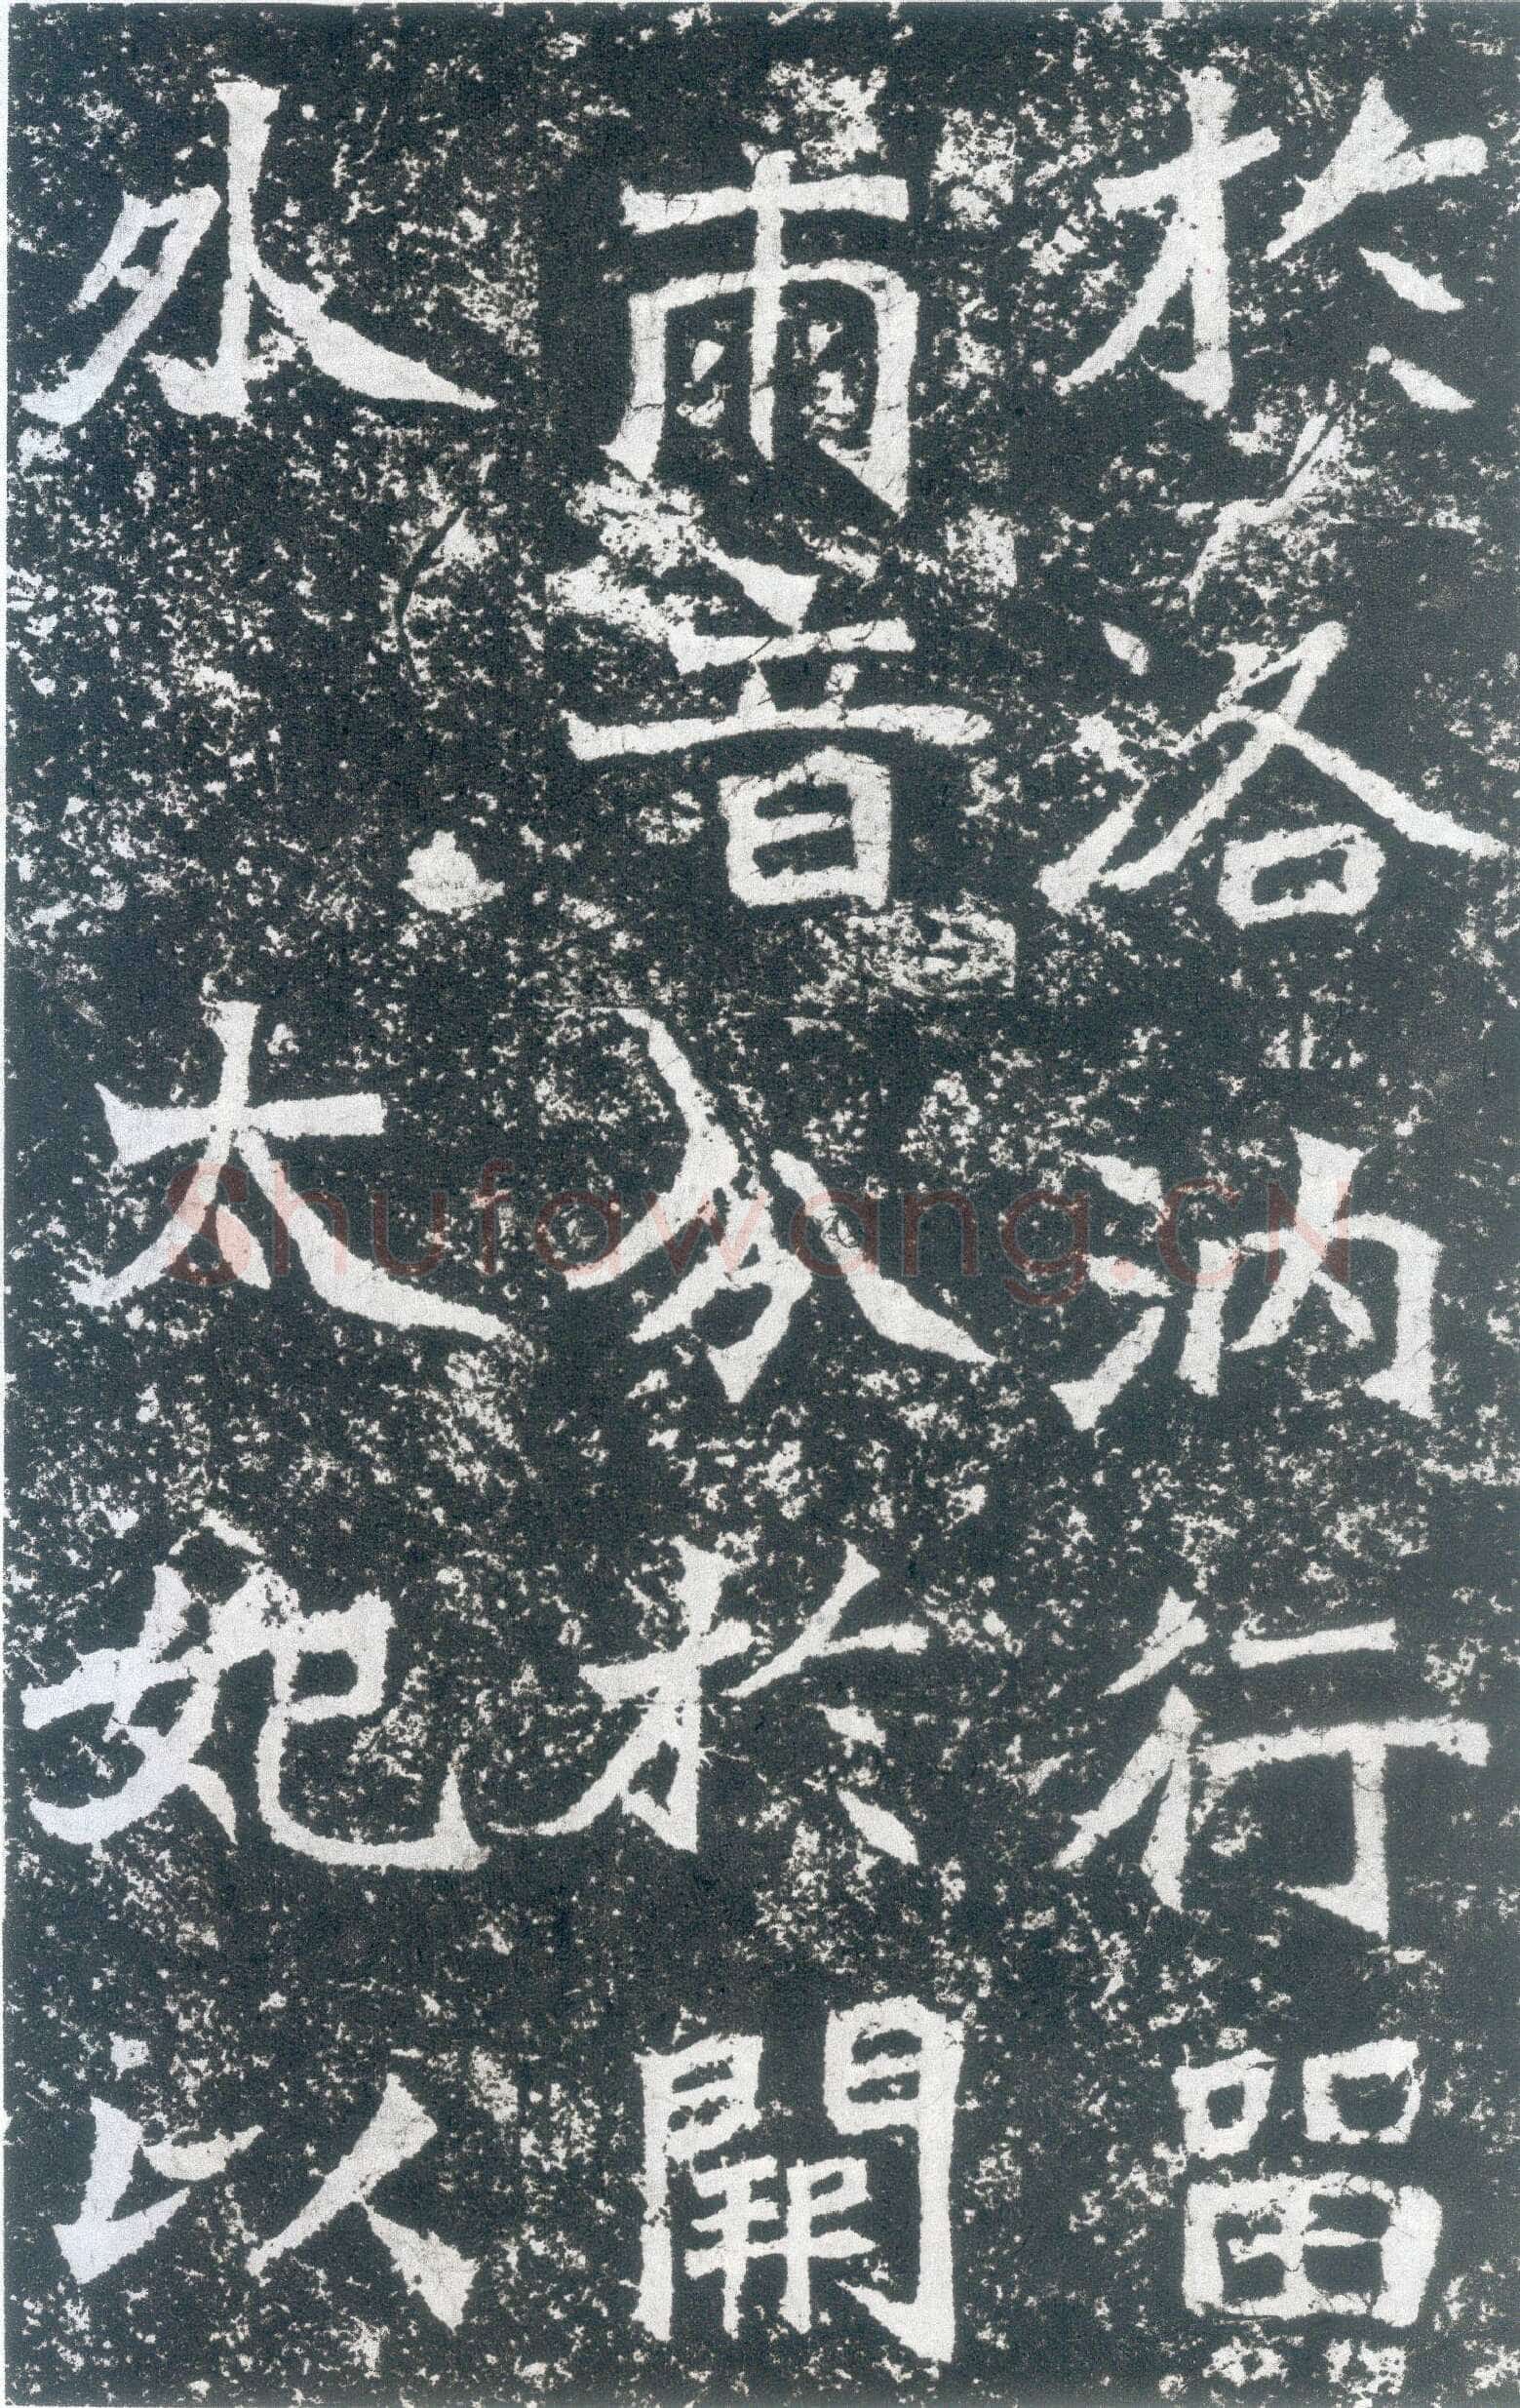 於洛汭行留
兩音分於開
外太妃以
Shufawang.CN